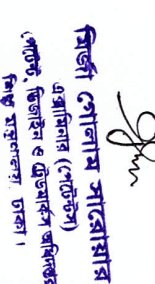 মির্জা গোলাম সারোয়ার
এক্সামিনার (পেটেন্ট)
পেটেন্ট, ডিজাইন ও ট্রেডমার্কস অধিদপ্তর
শিল্প মন্ত্রণালয়, ঢাকা।